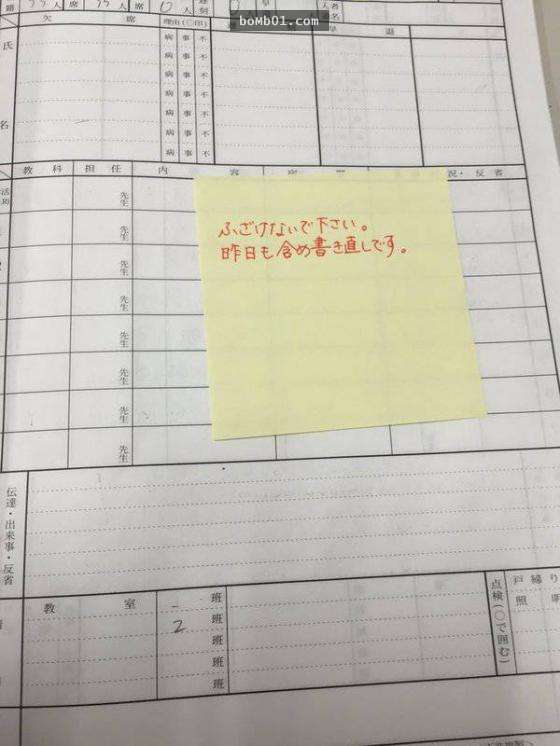 bomb01.com
人 席 人 席 0 人 席
欠 席 理由(○印) 早 退
氏 名
病 事 不
病 事 不
病 事 不
病 事 不
病 事 不
病 事 不
教科 担任 内 容 況・反省
先生
先生
先生
先生
先生
先生
先生
先生
ふざけないで下さい。
昨日も含め書き直しです。
伝達・出来事・反省
教 室 班
2 班
班
班
班
点検(○で囲む)
戸締り
照